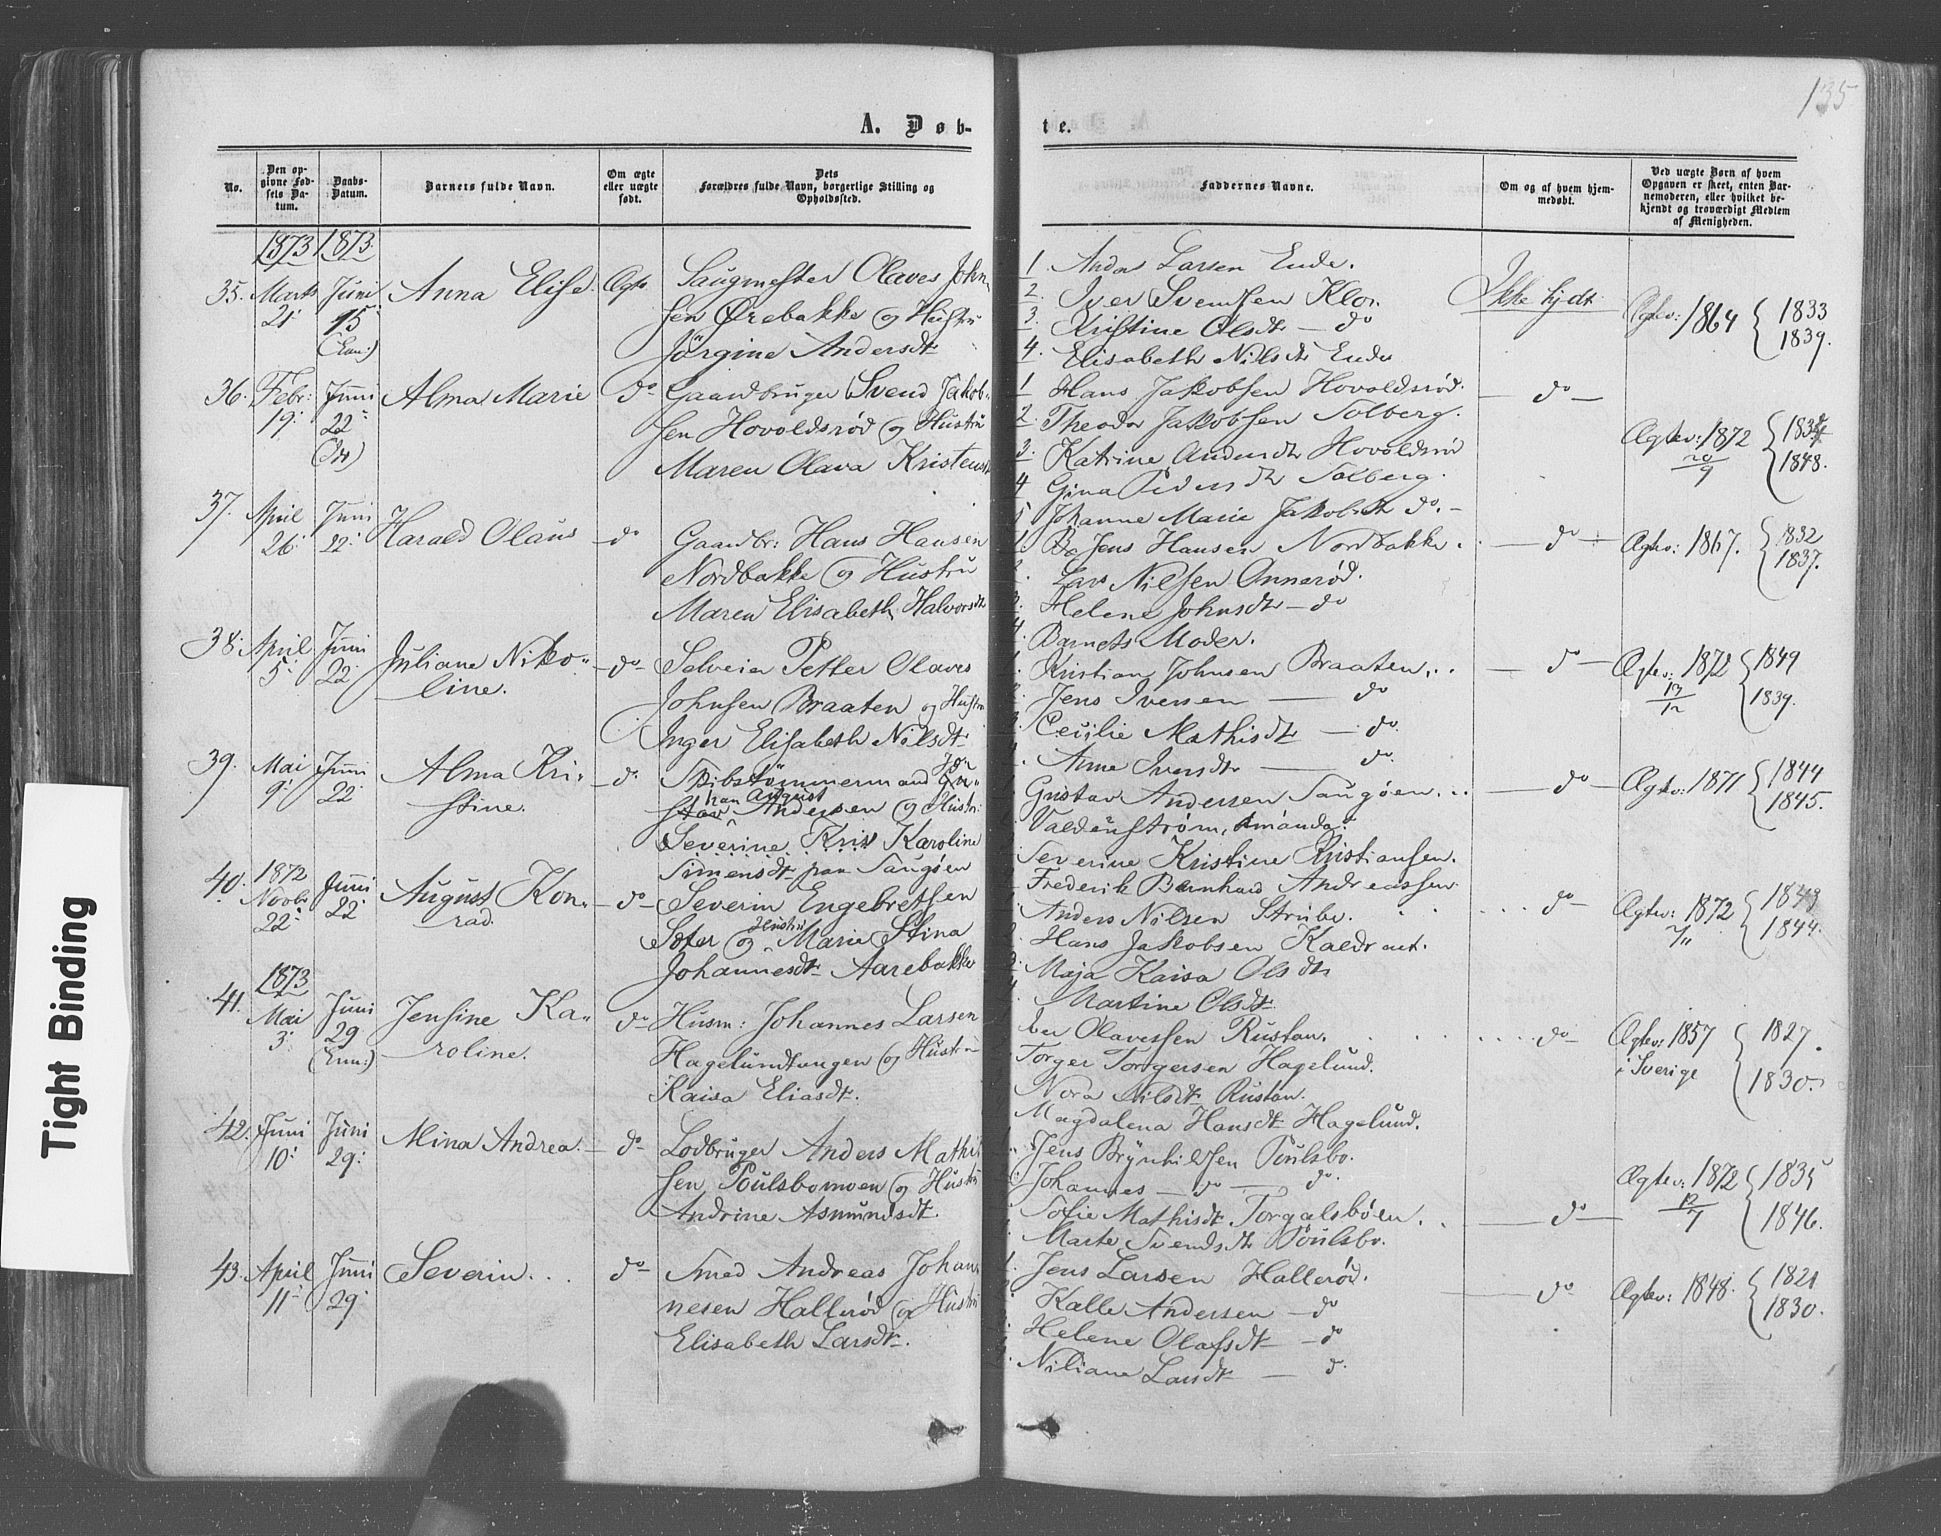 135
A. Døb-
te.
No.
Den op-
givne Fød-
sels Da-
tum.
Daabs-
Datum.
Barnets fulde Navn.
Om ægte
eller uægte
født.
Dets
Forældres fulde Navn, borgerlige Stilling og
Opholdssted.
Faddernes Navne.
Om og af hvem hjem-
medøbt.
Ved uægte Børn af hvem
Opgaven er skeet, enten Bar-
nemoderen, eller hvilket be-
kjendt og troværdigt Medlem
af Menigheden.
1873 1873
35. Marts 21 Juni 15 Anna Elise. Ægte.
Saugmester Olaves John
sen Ørebakke og Hustru
Jörgine Andersdt
1. Andr. Larsen Ende.
2. Iver Svendsen Klon
3. Kristine Olsdt — do
4. Elisabeth Nilsdt Ende
Ikke hjdt.
Ægtev: 1864 { 1833
1839.
36. Febr: 19. Juni 22 Alma Marie do
Gaardbruger Svend Jakob-
sen Hovoldsrød og Hustru
Maren Olava Kristensdt
1 Hans Jakobsen Hovoldsrød.
2. Theodor Jakobsen Solberg.
3. Katrine Andersdt Hovoldsrød
4 Gina Pedersdt Solberg.
5 Johanne Marie Jakobsdt do. -
— do —
Ægtev: 1872 20/9 { 1834
1848.
37. April 26. Juni 22. Harald Olaus — do
Gaardbr: Hans Hansen
Nordbakke og Hustru
Maren Elisabeth Halvorsdt
Jens Hansen Nordbakke.
Lars Nilsen Onnerød.
Helene Johnsdt — do
4. Barnets Moder.
— do —
Ægtev: 1867. { 1832
1837.
38. April 5. Juni 22 Juliane Niko-
line. — do —
Selveier Petter Olaves
Johnsen Braaten og Hustru
Inger Elisabeth Nilsdt
Kristian Johnsen Braaten,..
Jens Iversen — do
Cecilie Mathisdt — do.
Anne Iversdt — do.
— do —
Ægtev: 1872 13/12 { 1849
1839.
39. Mai 9. Juni 22 Alma Kri-
stine. — do.
Skibstömmermand
han August
Andersen og Hustr:
Severine Kris Karoline
Simensdt paa Saugøen
Gustav Andersen Saugøen...
Valdenström, Amanda:
Severine Kristine Kristiansen.
Frederik Bernhard Andreassen
— do —
Ægtev: 1871 { 1844
1845.
40. 1872 Novbr 22. Juni 22 August Kon-
rad. — do —
Severin Engebretsen
Soter og Hustru Marie Stina
Johannesdt Aarebakke
Anders Nilsen Strube.
Hans Jakobsen Kaldraet.
Maja Kaisa Olsdt
Martine Olsdt
do —
Ægtev: 1872 7/11 { 1849
1844.
1873
41. Mai 3. Juni 29 Jensine Ka-
roline. do
Husm: Johannes Larsen
Hagelundtangen og Hustru
Kaisa Eliasdt.
Olavessen Rustan.
Torger Torgersen Hagelund.
Nora Nilsdt Rustan.
Magdalena Hansdt Hagelund.
do —
Ægtev: 1857
i Sverige { 1827.
1830.
42. Juni 10. Juni 29. Mina Andrea. — do
Lodbruger Anders Mathi
sen Poulsbomoen og Hustru
Andrine Asmundsdt.
Jens Brynhildsen Poulsbo.
Johannes — do — do.
Sofie Mathisdt Torgalsbøen.
Marte Svendsdt Poulsbo.
— do —
Ægtev: 1872 12/7 { 1835
1846.
43. April 11 Juni 29. Severin... do
Smed Andreas Johan-
nesen Hallerød og Hustru
Elisabeth Larsdt.
Jens Larsen Hallerød.
Kalle Andersen — do
Helene Olafsdt — do
Niliane Larsdt — do.
— do
Ægtev: 1848. { 1821
1830.
Tight Binding